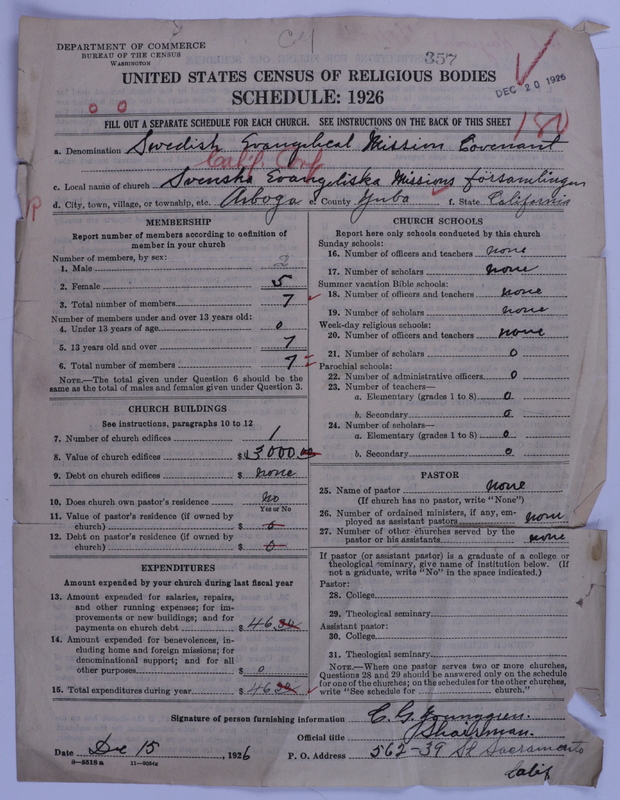 DEPARTMENT OF COMMERCE
BUREAU OF THE CENSUS
WASHINGTON
357
DEC 20 1926
UNITED STATES CENSUS OF RELIGIOUS BODIES
SCHEDULE: 1926
FILL OUT A SEPARATE SCHEDULE FOR EACH CHURCH. SEE INSTRUCTIONS ON THE BACK OF THIS SHEET
180
a. Denomination Swedish Evangelical Mission Covenant
Calif Conf
c. Local name of church Svenska Evangeliska Missions församlingen
d. City, town, village, or township, etc. Arboga e. County Yuba f. State California
MEMBERSHIP
Report number of members according to definition of
member in your church
Number of members, by sex:
1. Male 2
2. Female 5
3. Total number of members 7
Number of members under and over 13 years old:
4. Under 13 years of age 0
5. 13 years old and over 7
6. Total number of members 7
NOTE.—The total given under Question 6 should be
the same as the total of males and females given under Question 3.
CHURCH BUILDINGS
See instructions, paragraphs 10 to 12
7. Number of church edifices 1
8. Value of church edifices $3000.00
9. Debt on church edifices $ none
10. Does church own pastor's residence no
Yes or No
11. Value of pastor's residence (if owned by
church) $ 0
12. Debt on pastor's residence (if owned by
church) $ 0
EXPENDITURES
Amount expended by your church during last fiscal year
13. Amount expended for salaries, repairs,
and other running expenses; for im-
provements or new buildings; and for
payments on church debt $ 46
14. Amount expended for benevolences, in-
cluding home and foreign missions; for
denominational support; and for all
other purposes $ 0
15. Total expenditures during year $ 46
CHURCH SCHOOLS
Report here only schools conducted by this church
Sunday schools:
16. Number of officers and teachers none
17. Number of scholars none
Summer vacation Bible schools:
18. Number of officers and teachers none
19. Number of scholars none
Week-day religious schools:
20. Number of officers and teachers none
21. Number of scholars 0
Parochial schools:
22. Number of administrative officers 0
23. Number of teachers—
a. Elementary (grades 1 to 8) 0
b. Secondary 0
24. Number of scholars—
a. Elementary (grades 1 to 8) 0
b. Secondary 0
PASTOR
25. Name of pastor none
(If church has no pastor, write "None")
26. Number of ordained ministers, if any, em-
ployed as assistant pastors none
27. Number of other churches served by the
pastor or his assistants none
If pastor (or assistant pastor) is a graduate of a college or
theological seminary, give name of institution below. (If
not a graduate, write "No" in the space indicated.)
Pastor:
28. College
29. Theological seminary
Assistant pastor:
30. College
31. Theological seminary
NOTE.—Where one pastor serves two or more churches,
Questions 28 and 29 should be answered only on the schedule
for one of the churches; on the schedules for the other churches,
write "See schedule for church."
Signature of person furnishing information C. G. Younggren.
Official title Chairman.
Date Dec 15, 1926 P. O. Address 562-39 St Sacramento
Calif
9-5518 a